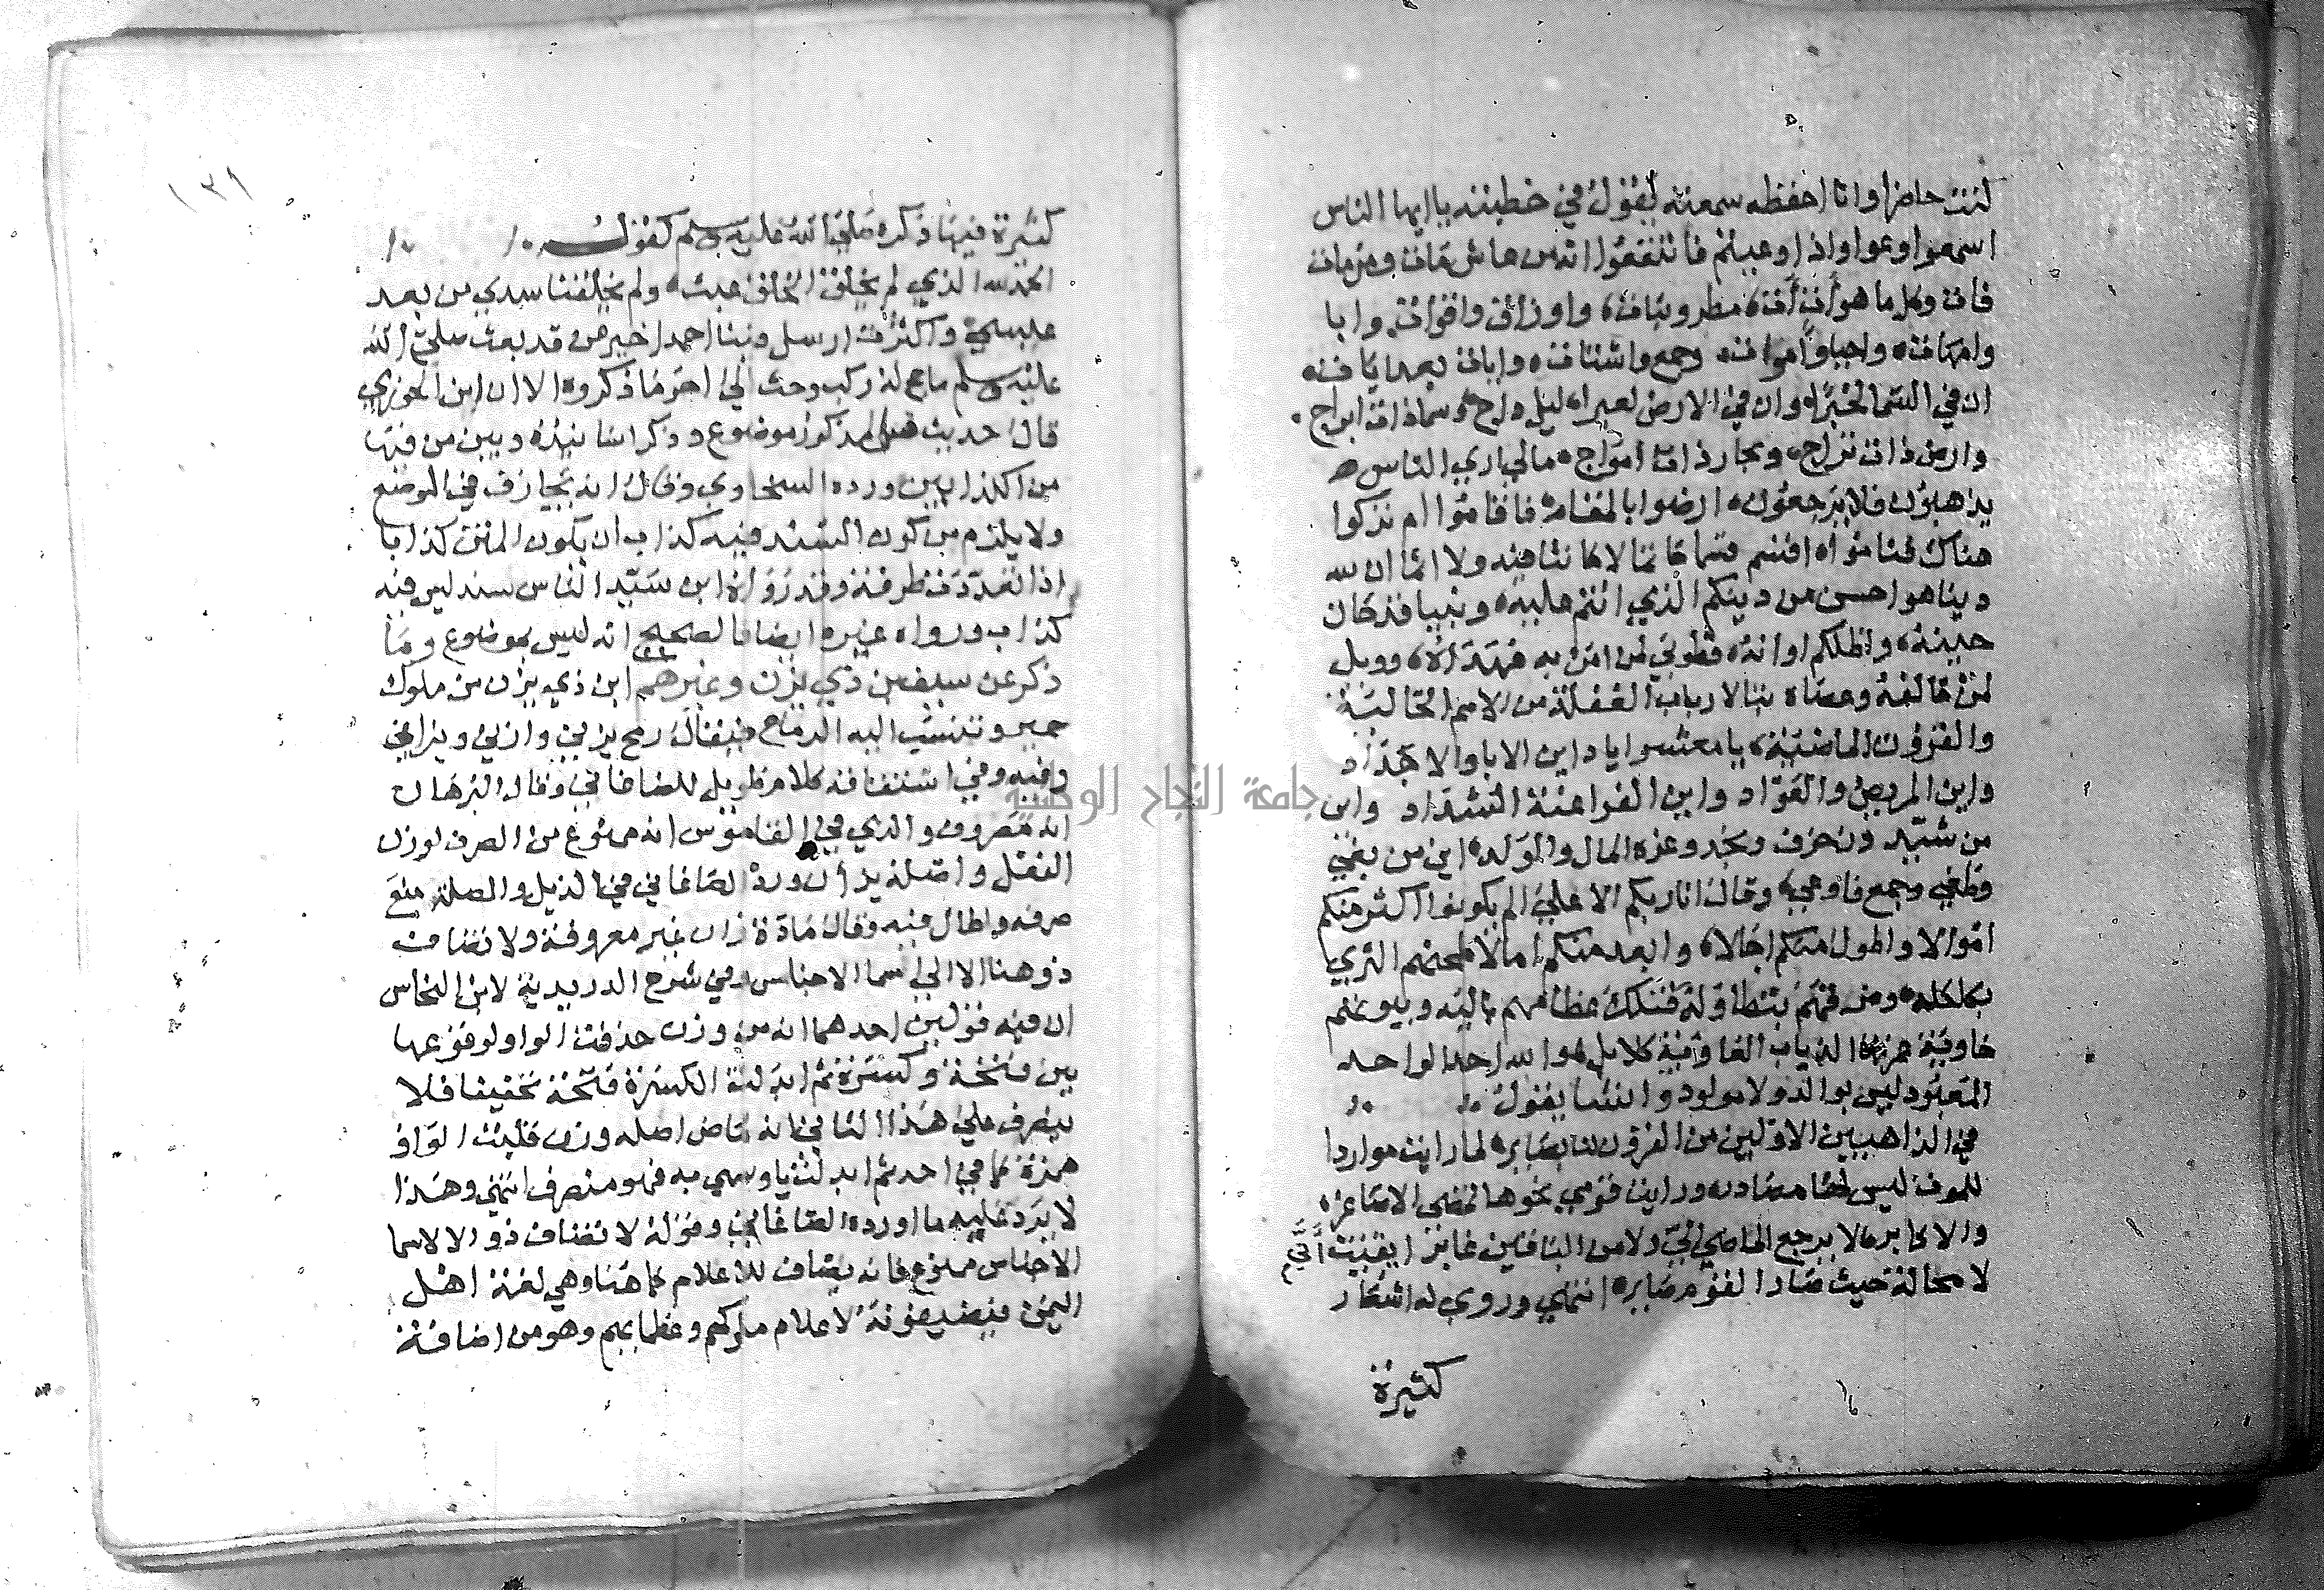 كنت حاضرا وانا احفظه سمعته يقول في خطبته يا ايها الناس
اسمعوا وعوا واذا وعيتم فانتفعوا انه من عاش مات ومن مات
فات وكل ما هو آت آت مطر ونبات وارزاق واقوات وابا
وامهات واحيا واموات وجمع واشتات وايات بعد ايات
ان في السما لخبرا وان في الارض لعبرا ليل داج وسما ذات ابراج
وارض ذات رتاج وبحار ذات امواج مالي اري الناس
يذهبون فلا يرجعون ارضوا بالمقام فاقاموا ام تركوا
هناك فناموا اقسم قسما حاتما لا حانثا فيه ولا اثما ان لله
دينا هو احسن من دينكم الذي انتم عليه ونبيا قد حان
حينه واظلكم اوانه فطوبي لمن امن به فهداه وويل
لمن خالفه وعصاه تبا لارباب الغفلة من الامم الخالية
والقرون الماضية يا معشر اياد اين الابا والاجداد
واين المريض والعواد واين الفراعنة الشداد واين
من شيد وزخرف ونجد وغره المال والولد اين من بغي
وطغي وجمع فاوعي وقال انا ربكم الاعلي الم يكونوا اكثر منكم
اموالا واطول منكم اجالا وابعد منكم امالا طحنهم الثري
بكلكله ومزقهم بتطاوله فتلك عظامهم بالية وبيوتهم
خاوية عمرتها الذياب العاوية كلا بل هو الله احد الواحد
المعبود ليس بوالد ولا مولود وانشا يقول
في الذاهبين الاولين من القرون لنا بصاير لما رايت مواردا
للموت ليس لها مصادر ورايت قومي نحوها تمضي الاصاغر
والاكابر لا يرجع الماضي الي ولا من الباقين غابر ايقنت اني
لا محالة حيث صار القوم صاير انتهي وروي له اشعار
كثيرة
١٣١
كثيرة فيها ذكره صلي الله عليه وسلم كقوله
الحمد لله الذي لم يخلق الخلق عبث ولم يخلفنا سدي من بعد
عيسي واكترث ارسل فينا احمدا خير من قد بعث صلي الله
عليه وسلم ما حج له ركب وحث الي اخر ما ذكروه الا ان ابن الجوزي
قال حديث قس المذكور موضوع وذكر اسانيده وبين من فيها
من الكذابين ورده السخاوي وقال انه يجازف في الوضع
ولا يلزم من كون السند فيه كذاب ان يكون المتن كذابا
اذا تعددت طرقه وقد رواه ابن سيد الناس بسند ليس فيه
كذاب ورواه غيره ايضا فالصحيح انه ليس بموضوع وما
ذكر عن سيف بن ذي يزن وغيرهم ابن ذي يزن من ملوك
حمير وتنسب اليه الرماح فيقال رمح يزني وازني ويزاني
وفيه وفي اشتقاقه كلام طويل للصاغاني وقال البرهان
انه مصروف والذي في القاموس انه ممنوع من الصرف لوزن
الفعل واصله يزأن ورده الصاغاني في الذيل والصلة منع
صرفه واطال فيه وقال مادة زان غير معروفة ولا تضاف
ذو هنا الا الي اسما الاجناس وفي شرح الدريدية لابن النحاس
ان فيه قولين احدهما انه من وزن حذفت الواو لوقوعها
بين فتحة وكسرة ثم ابدلت الكسرة فتحة تخفيفا فلا
ينصرف علي هذا الثاني انه ماض اصله وزن قلبت الواو
همزة كما في احد ثم ابدلت يا وسمي به فهو منصرف انتهي وهذا
لا يرد عليه ما اورده الصاغاني وقوله لا تضاف ذو الا لاسما
الاجناس ممنوع فانه يضاف للاعلام كما هنا وهي لغة اهل
اليمن فيضيفونه لاعلام ملوكهم وعظمايهم وهو من اضافة
جامعة النجاح الوطنية